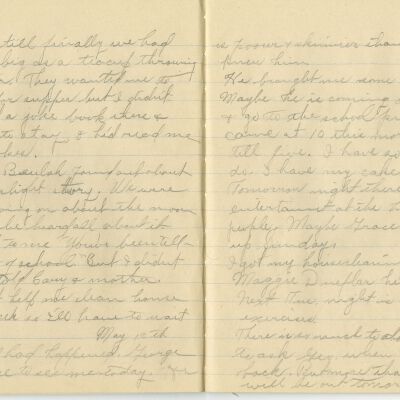 till finally we had
big as a teacup throwing
r. They wanted me to
for supper but I didn't
a joke book there &
to stay, & he'd read me
Beulah found out about
light story. We were
going on about the moon
he heard all about it
"You've been tell-
of school." But I didn't
told Gary's mother.
help me clean house
I'll have to wait
May 12th
had happened. George
to see me today. He
is poorer & skinnier than
knew him.
He brought me some
Maybe he is coming
& go to the school
came at 10 this mor
till five. I have so
do. I have my cake
Tomorrow night there
entertainment at the
people. Maybe Grace
up Sunday.
I got my housecleaning
Maggie he
Next Tue. night is
exercises.
There is so much to do
to ask Geo. when
back. But more than
will be out tomor